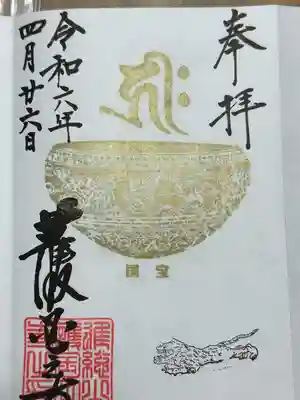 奉拝
国宝
令和六年
四月廿六日
護国之寺